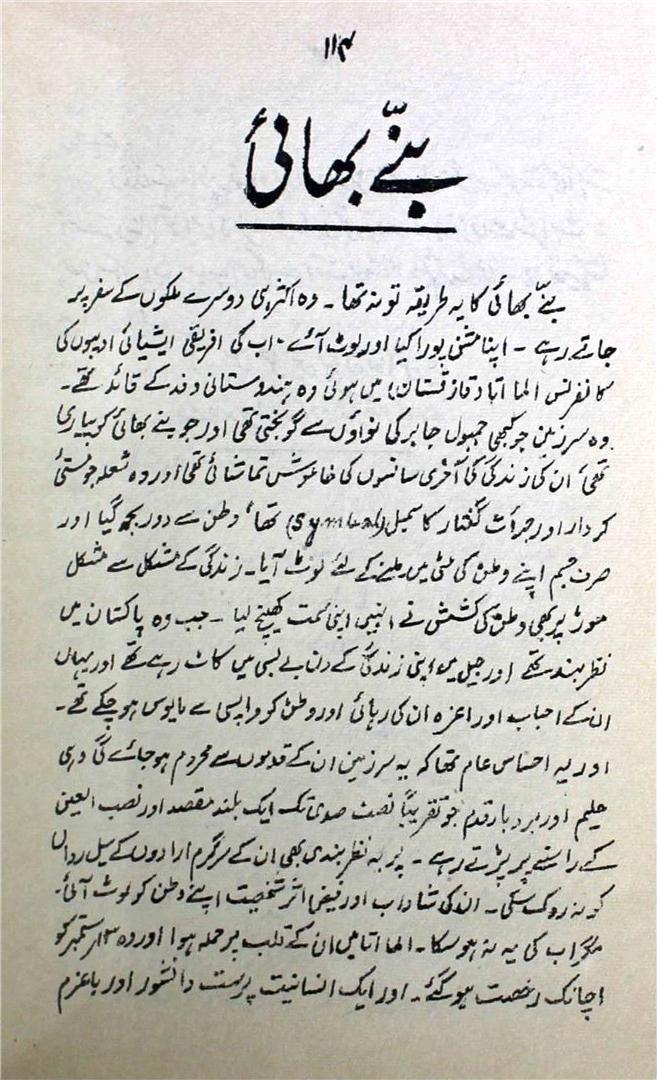 ۱۱۴
بنّے بھائی
بنّے بھائی کا یہ طریقہ تو نہ تھا۔ وہ اکثر ہی دوسرے ملکوں کے سفر پر
جاتے رہے۔ اپنا مشن پورا کیا اور لوٹ آئے۔ اب کی افریقی ایشیائی ادیبوں کی
کانفرنس الما آتا (قازقستان) میں ہوئی وہ ہندوستانی وفد کے قائد تھے۔
وہ سرزمین جو کبھی جمبول جابر کی نواؤں سے گونجتی تھی اور جو بنے بھائی کو پیاری
تھی، ان کی زندگی کی آخری سانسوں کی خاموش تماشائی تھی اور وہ شعلہ جو مستئ
کردار اور جرأت گفتار کا سمبل (Symbal) تھا، وطن سے دور بجھ گیا اور
صرف جسم اپنے وطن کی مٹی میں ملنے کے لئے لوٹ آیا۔ زندگی کے مشکل سے مشکل
موڑ پر بھی وطن کی کشش نے انہیں اپنی سمت کھینچ لیا۔ جب وہ پاکستان میں
نظر بند تھے اور جیل میں اپنی زندگی کے دن بے بسی میں کاٹ رہے تھے اور یہاں
ان کے احباب اور اعزہ ان کی رہائی اور وطن کو واپسی سے مایوس ہو چکے تھے۔
اور یہ احساس عام تھا کہ یہ سرزمین ان کے قدموں سے محروم ہو جائے گی وہی
حلیم اور بردبار قدم جو تقریباً نصف صدی تک ایک بلند مقصد اور نصب العین
کے راستے پر پڑتے رہے۔ پر یہ نظر بندی بھی ان کے سرگرم ارادوں کے سیل رواں
کو نہ روک سکی۔ ان کی شاداب اور فیض اثر شخصیت اپنے وطن کو لوٹ آئی۔
مگر اب کی یہ نہ ہو سکا۔ الما آتا میں ان کے قلب پر حملہ ہوا اور وہ ۱۳ ستمبر کو
اچانک رخصت ہو گئے۔ اور ایک انسانیت پرست دانشور اور باعزم